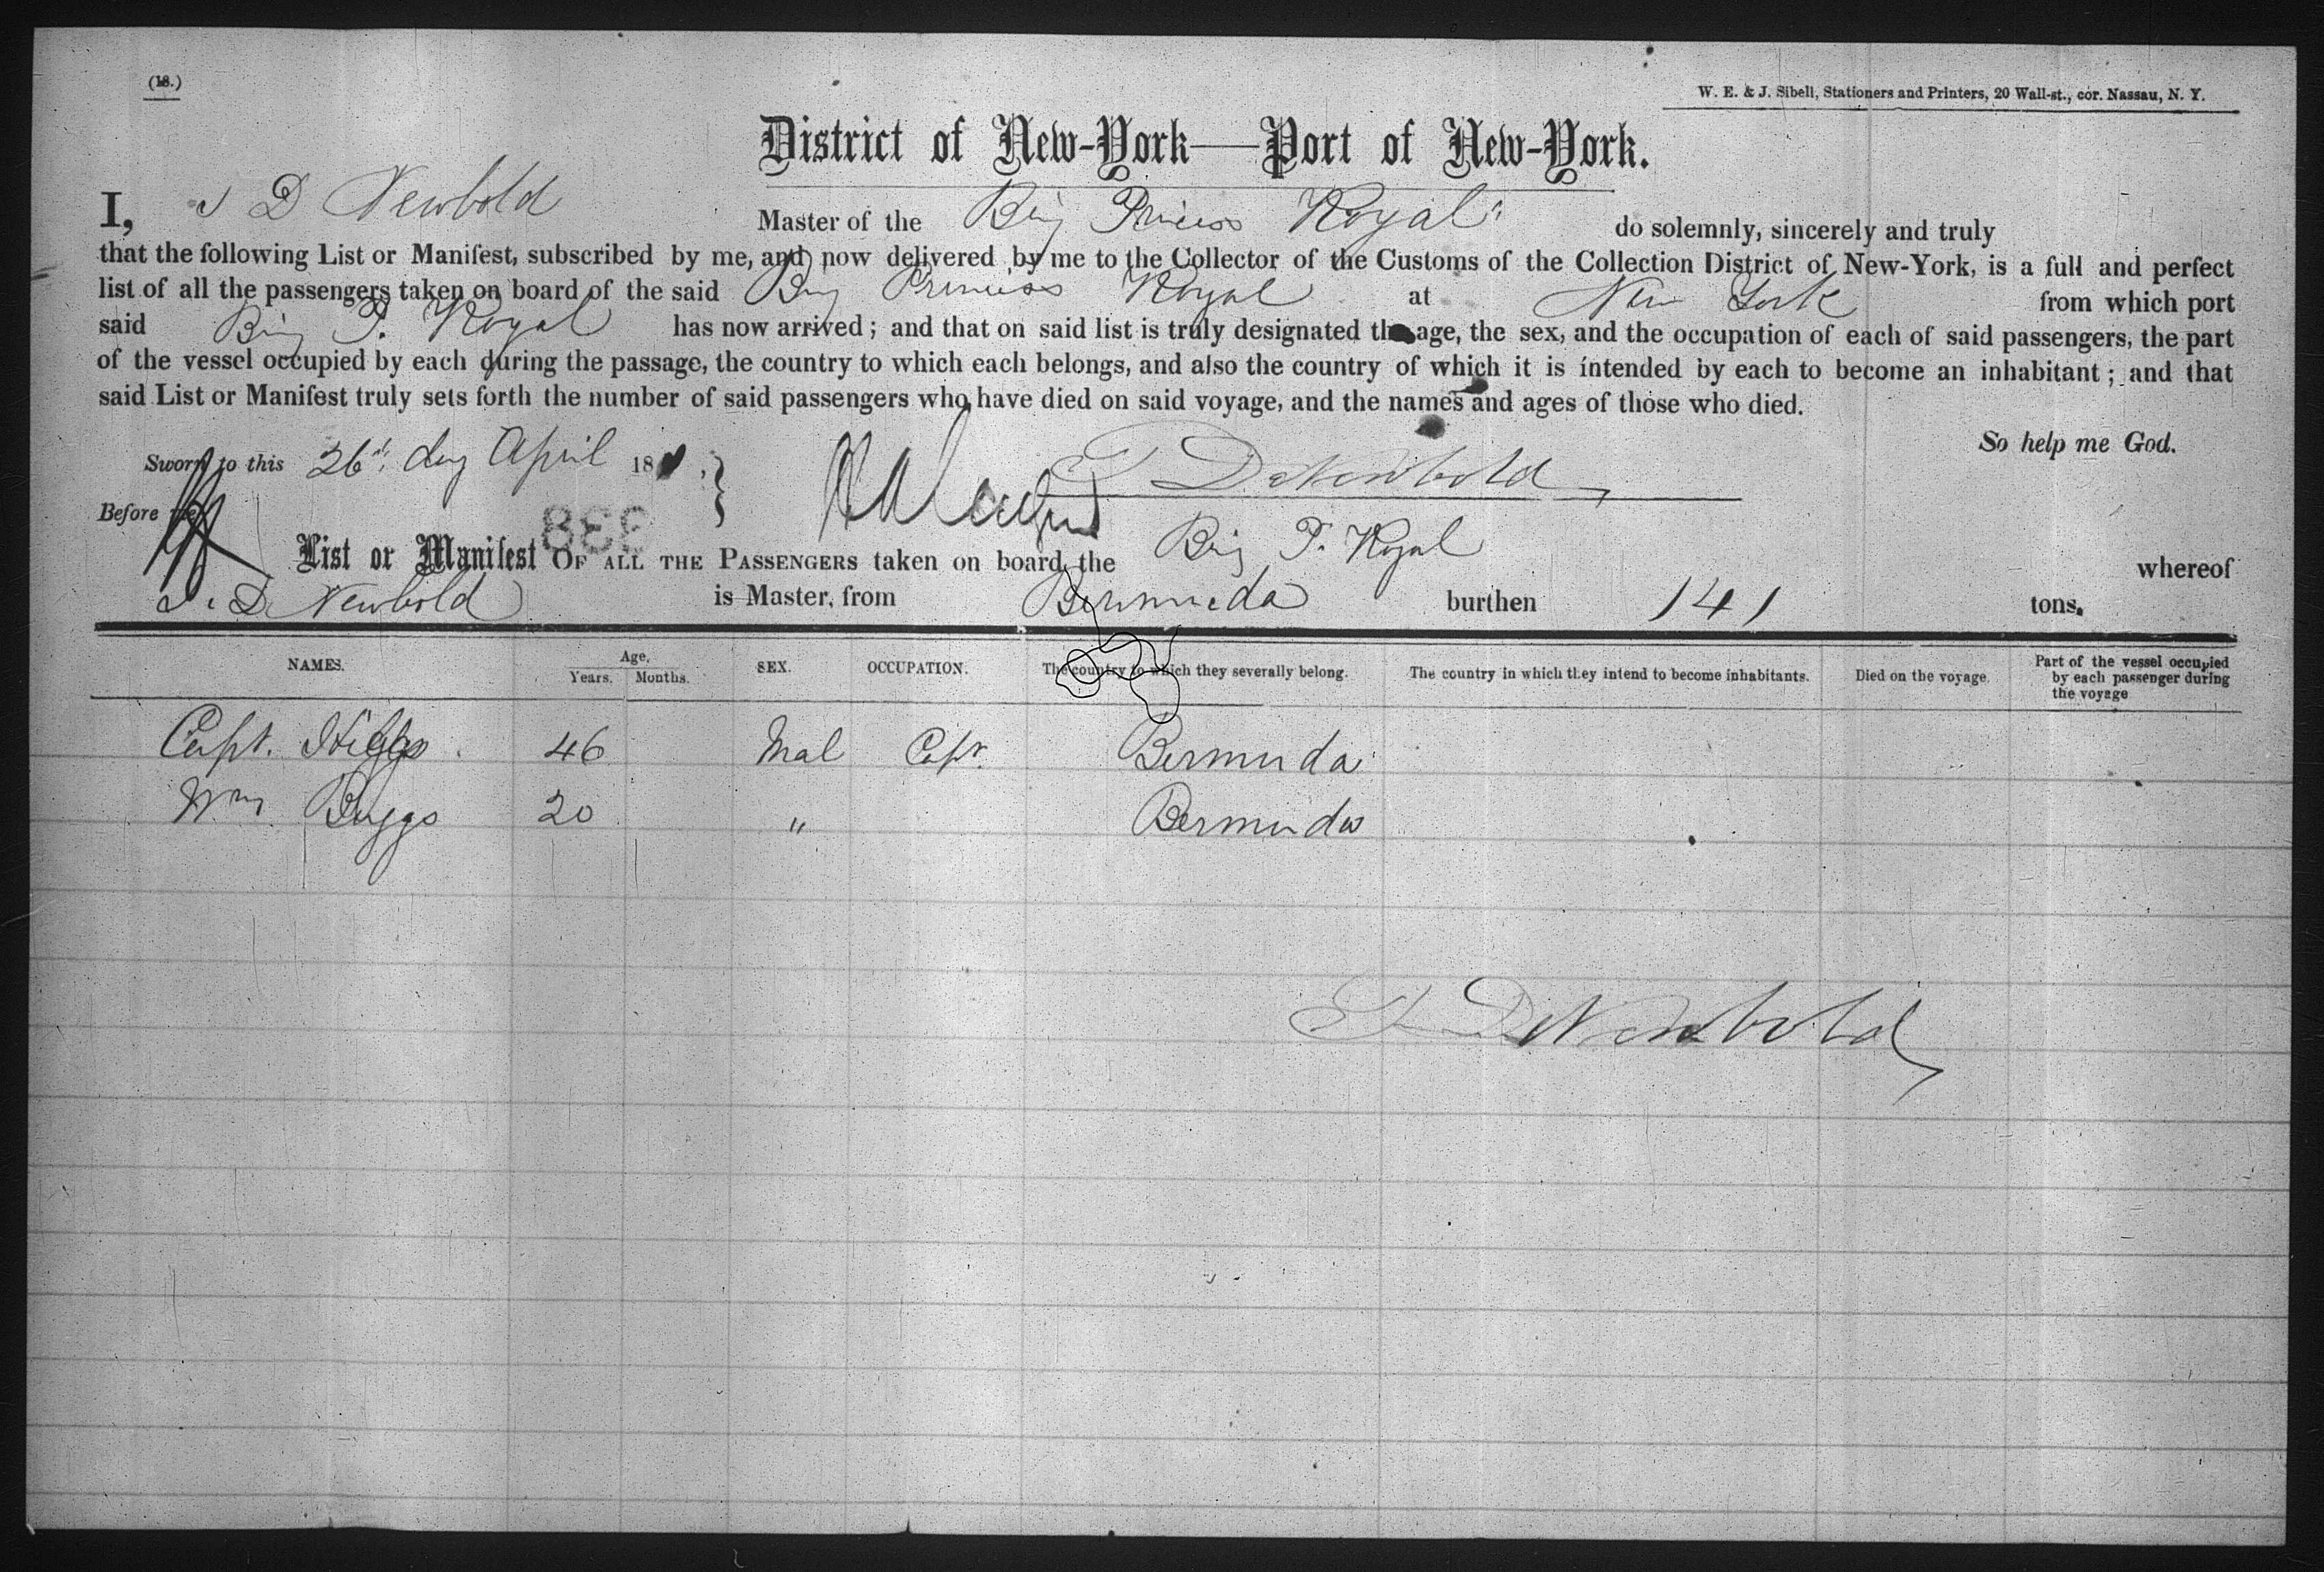 (18.)
W. E. & J. Sibell, Stationers and Printers, 20 Wall-st., cor. Nassau, N. Y.
District of New-York—Port of New-York.
I, D Newbold Master of the Brig Princess Royal" do solemnly, sincerely and truly
that the following List or Manifest, subscribed by me, and now delivered by me to the Collector of the Customs of the Collection District of New-York, is a full and perfect
list of all the passengers taken on board of the said Brig Princess Royal at New York from which port
said Brig P. Royal has now arrived; and that on said list is truly designated the age, the sex, and the occupation of each of said passengers, the part
of the vessel occupied by each during the passage, the country to which each belongs, and also the country of which it is intended by each to become an inhabitant; and that
said List or Manifest truly sets forth the number of said passengers who have died on said voyage, and the names and ages of those who died.
So help me God.
Sworn to this 26th day April 18
D Newbold
Before me
338
List or Manifest OF ALL THE PASSENGERS taken on board the Brig P. Royal whereof
D Newbold is Master, from Bermuda burthen 141 tons.
NAMES. Age, Years. Months. SEX. OCCUPATION. The country to which they severally belong. The country in which they intend to become inhabitants. Died on the voyage. Part of the vessel occupied by each passenger during the voyage
Capt. Higgs 46 Mal Capt. Bermuda
Wm Buggs 20 " Bermuda
D Newbold